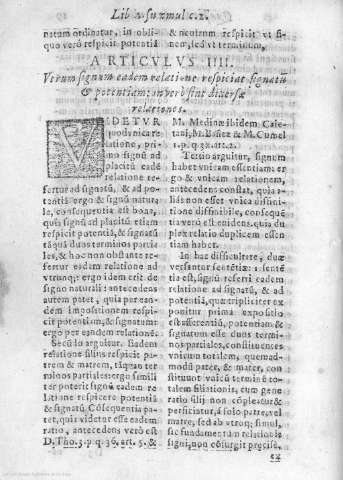 Lib 2. summul c. 2.
natum ordinatur, in obli-
quo verò respicit potentiã
ARTICVLVS IIII.
Vtrum signum eadem relatione respiciat signatũ
& potentiam: an verò sint diversæ
relationes.
VIDETVR
quod vnica re
latione, pri-
mo signũ ad
placitũ eadẽ
relatione re-
fertur ad signatũ, & ad po-
tentiã ergo & signũ natura
le, consequentia est bona,
quia signũ placitũ etiam
respicit potentiã, & signatũ
tãquã duos terminos partia
les, & hoc non obstante re-
fertur eadem relatione ad
vtrunq;: ergo idem erit de
signo naturali: antecedens
autem patet, quia per ean-
dem impositionem respi-
cit potentiam, & signatum:
ergo per eandem relationẽ.
Secũdo arguitur. Eadem
relatione filius respicit pa-
trem & matrem, tãquan ter
minos partiales ergo simili
ter poterit signũ eadem re-
latione respicere potentiã
& signatũ Cõsequentia pa-
tet, quia videtur esse eadem
ratio, antecedens verò est
D. Tho. 3. p. q. 36. art. 5. &
& nicotram respicit vt si-
nem, sed vt terminum,
M. Medina ibidem Caie-
tani, M. Bañez & M. Cumel
1. p. q. 32. art. 2.
Tertio arguitur, signum
habet vnicam essentiam: er
go & vnicam relationem,
antecedens constat, quia a-
liàs non esset vnica diffini-
tione diffinibile, conseque
tia verò est euidens. quia du
plex relatio duplicem essen
tiam habet.
In hac difficultate, duæ
versantur sentẽtiæ: 1. sentẽ
tia est, signũ referri eadem
relatione ad signatũ, & ad
potentiã, quæ tripliciter ex
ponitur prima expositio
est asserentiũ, potentiam &
signatum esse duos termi-
nos partiales, constituentes
vnicum totalem, quemad-
modũ pater, & mater, con
stituunt vnicũ terminũ to
talem filiationis, cum gene
ratio filij non cõpleatur &
perficiatur, à solo patre, vel
matre, sed ab vtroq; simul,
sic fundamentũ relationis
signi, non cõsurgit præcise,
54